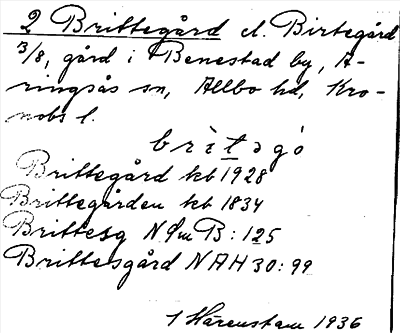 2 Brittegård el. Birtegård
3/8, gård i Benestad by, A-
ringsås sn, Allbo hd, Kro-
nobs l.
britəgó
Brittegård kb 1928
Brittegården kb 1834
Brittesg N Sm B: 125
Brittesgård NAH 30: 99
1 Härenstam 1936